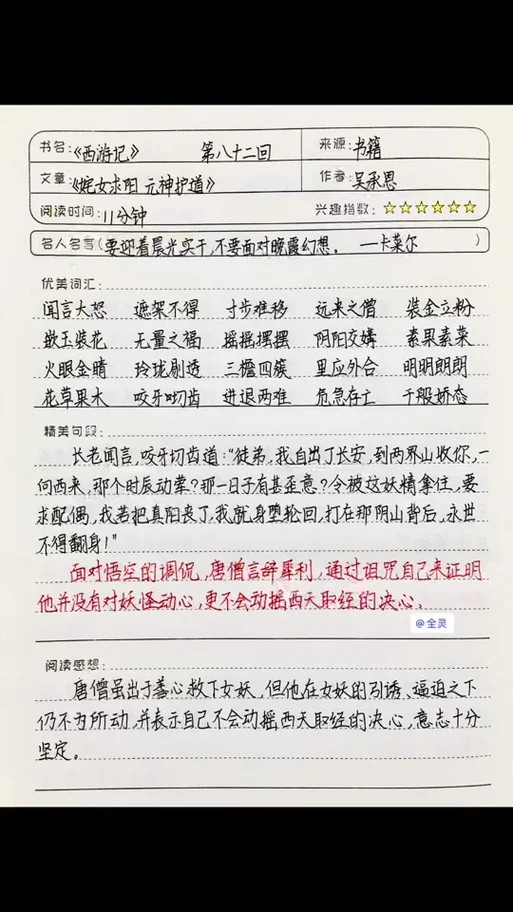 书名:《西游记》 第八十二回 来源:书籍
文章:《姹女求阳 元神护道》 作者:吴承恩
阅读时间:11分钟 兴趣指数:
名人名言(要迎着晨光实干,不要面对晚霞幻想。 —卡莱尔)
优美词汇:
闻言大怒 遮架不得 寸步难移 远来之僧 装金立粉
嵌玉装花 无量之福 摇摇摆摆 阴阳交媾 素果素菜
火眼金睛 玲珑剔透 三檐四簇 里应外合 明明朗朗
花草果木 咬牙切齿 进退两难 危急存亡 千般娇态
精美句段:
长老闻言,咬牙切齿道:“徒弟,我自出了长安,到两界山收你,一
向西来,那个时辰动荤?那一日子有甚歪意?今被这妖精拿住,要
求配偶,我若把真阳丧了,我就身堕轮回,打在那阴山背后,永世
不得翻身!”
面对悟空的调侃,唐僧言辞犀利,通过诅咒自己来证明
他并没有对妖怪动心,更不会动摇西天取经的决心。
@全灵
阅读感想:
唐僧虽出于善心救下女妖,但他在女妖的引诱、逼迫之下
仍不为所动,并表示自己不会动摇西天取经的决心,意志十分
坚定。